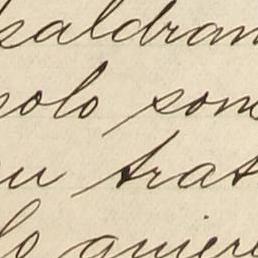 saldran
solo son
su trat
lo quiere